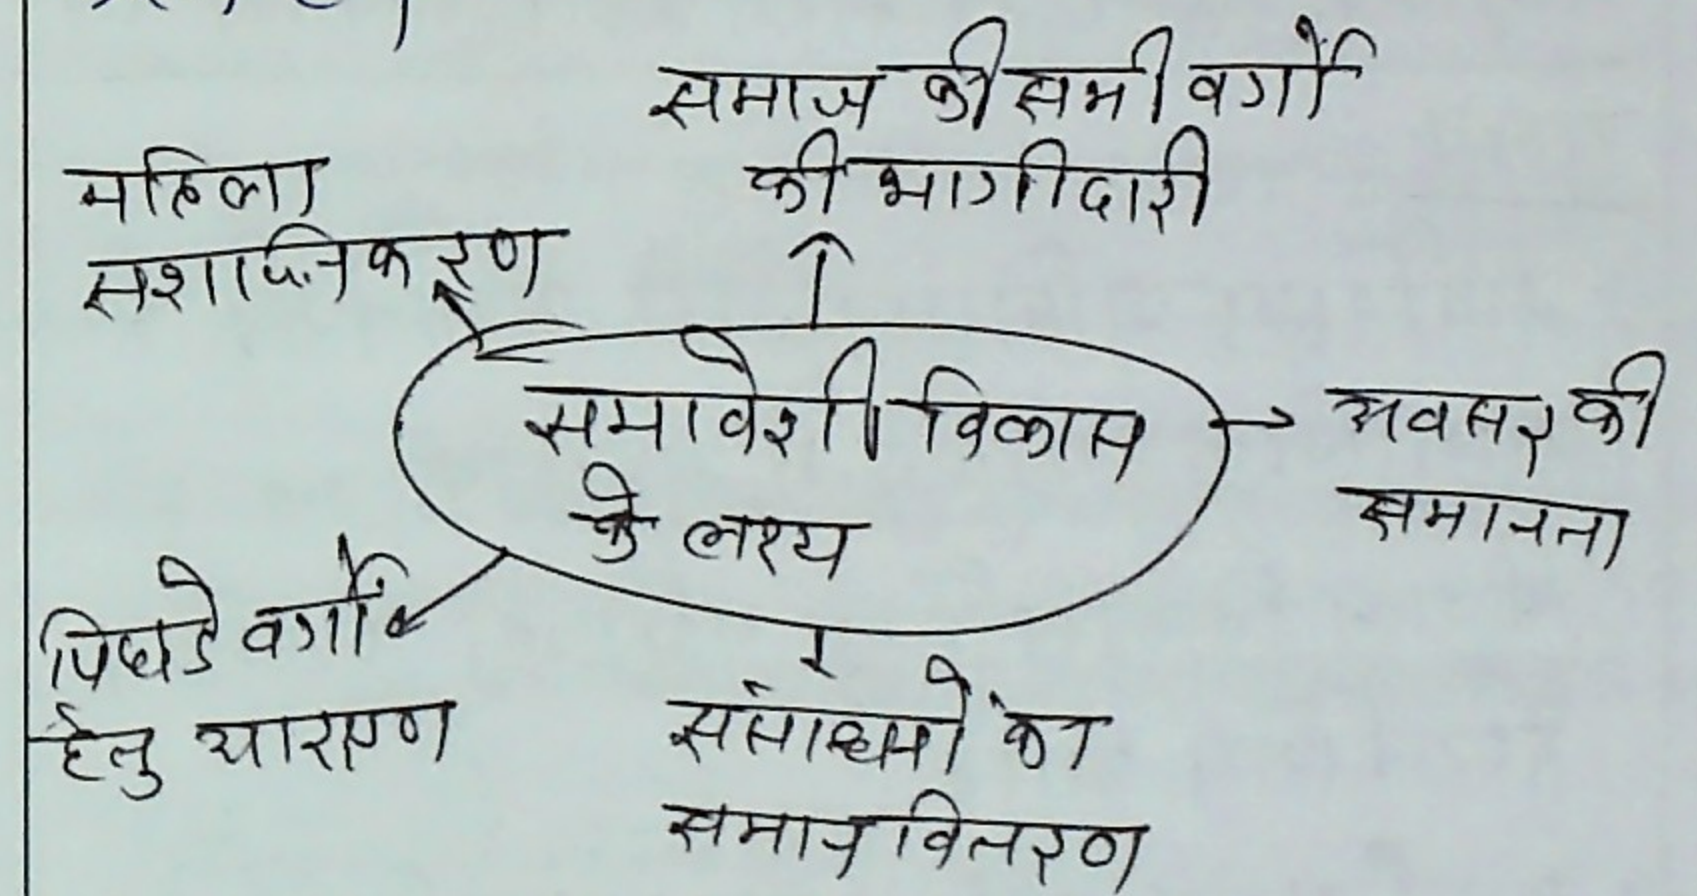 समाज की सभी वर्गों
की भागीदारी
महिला
सशक्तिकरण
समावेशी विकास
के लक्ष्य
अवसर की
समानता
पिछडे वर्गों
हेतु आरक्षण
संसाधनों का
समान वितरण